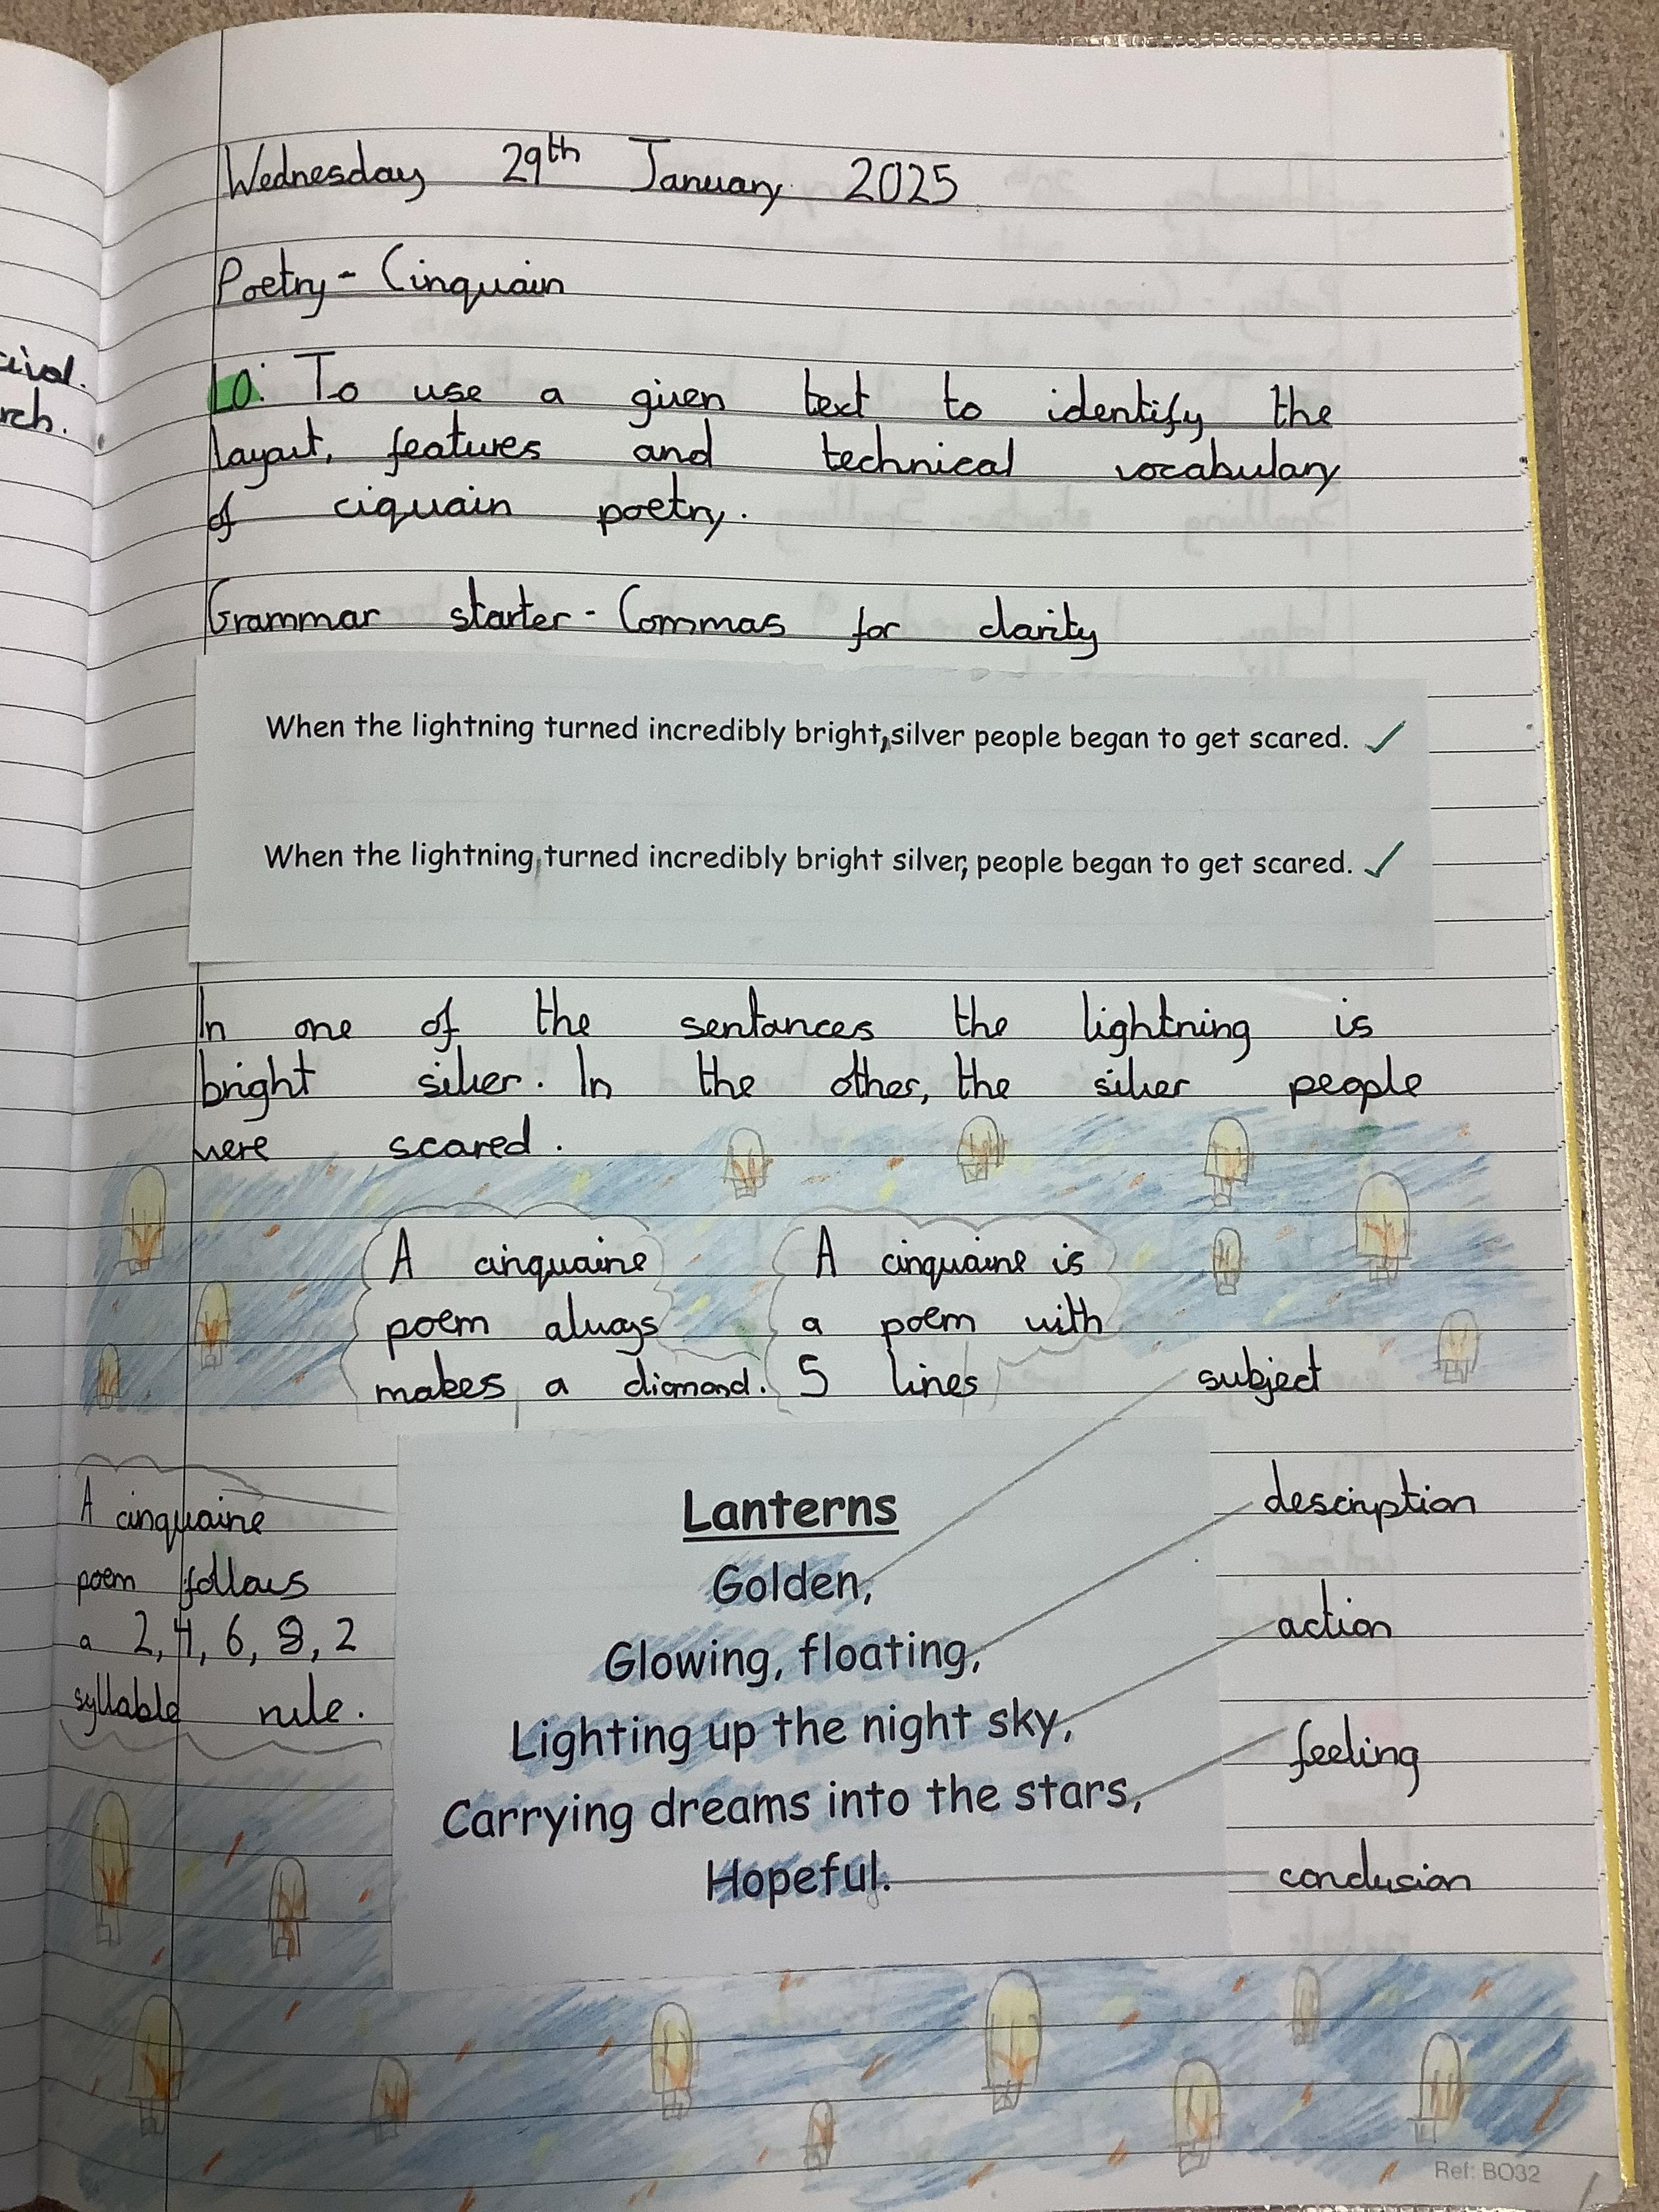 Wednesday 29th January 2025
Poetry - Cinquain
LO: To use a given text to identify the
layout, features and technical vocabulary
of ciquain poetry.
Grammar starter - Commas for clarity
When the lightning turned incredibly bright, silver people began to get scared. ✓
When the lightning, turned incredibly bright silver, people began to get scared. ✓
In one of the sentances the lightning is
bright silver. In the other, the silver people
were scared.
A cinquaine
poem always
makes a diamond.
A cinquaine is
a poem with
5 lines
A cinquaine
poem follows
a 2, 4, 6, 8, 2
syllable rule.
Lanterns
Golden,
Glowing, floating,
Lighting up the night sky,
Carrying dreams into the stars,
Hopeful.
subject
description
action
feeling
conclusion
Ref: BO32